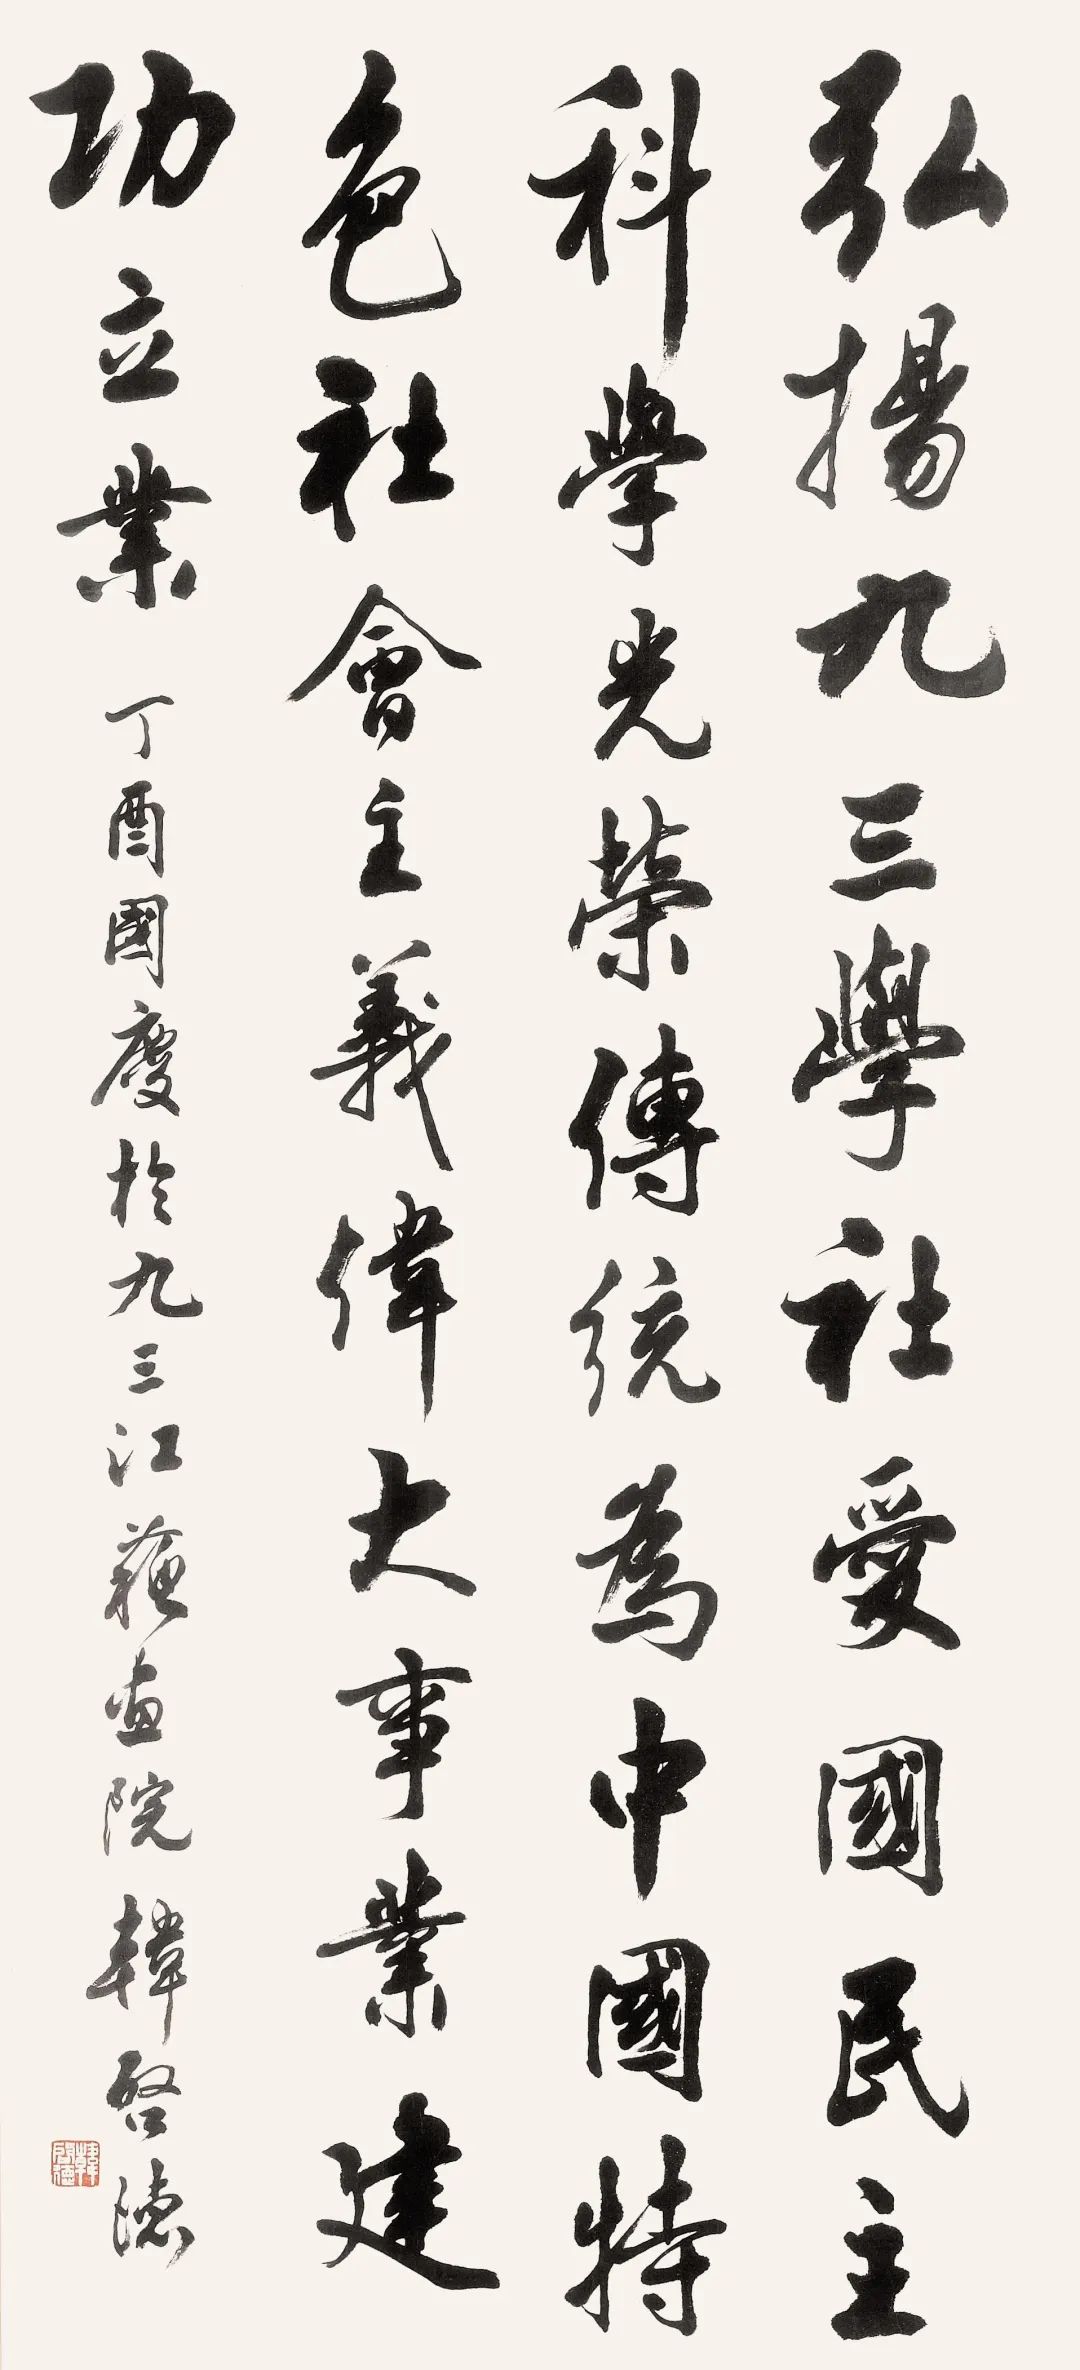 弘揚九三學社愛國民主
科學光榮傳統為中國特
色社會主義偉大事業建
功立業
丁酉國慶於九三江蘇畫院韓啓德
韓啓德